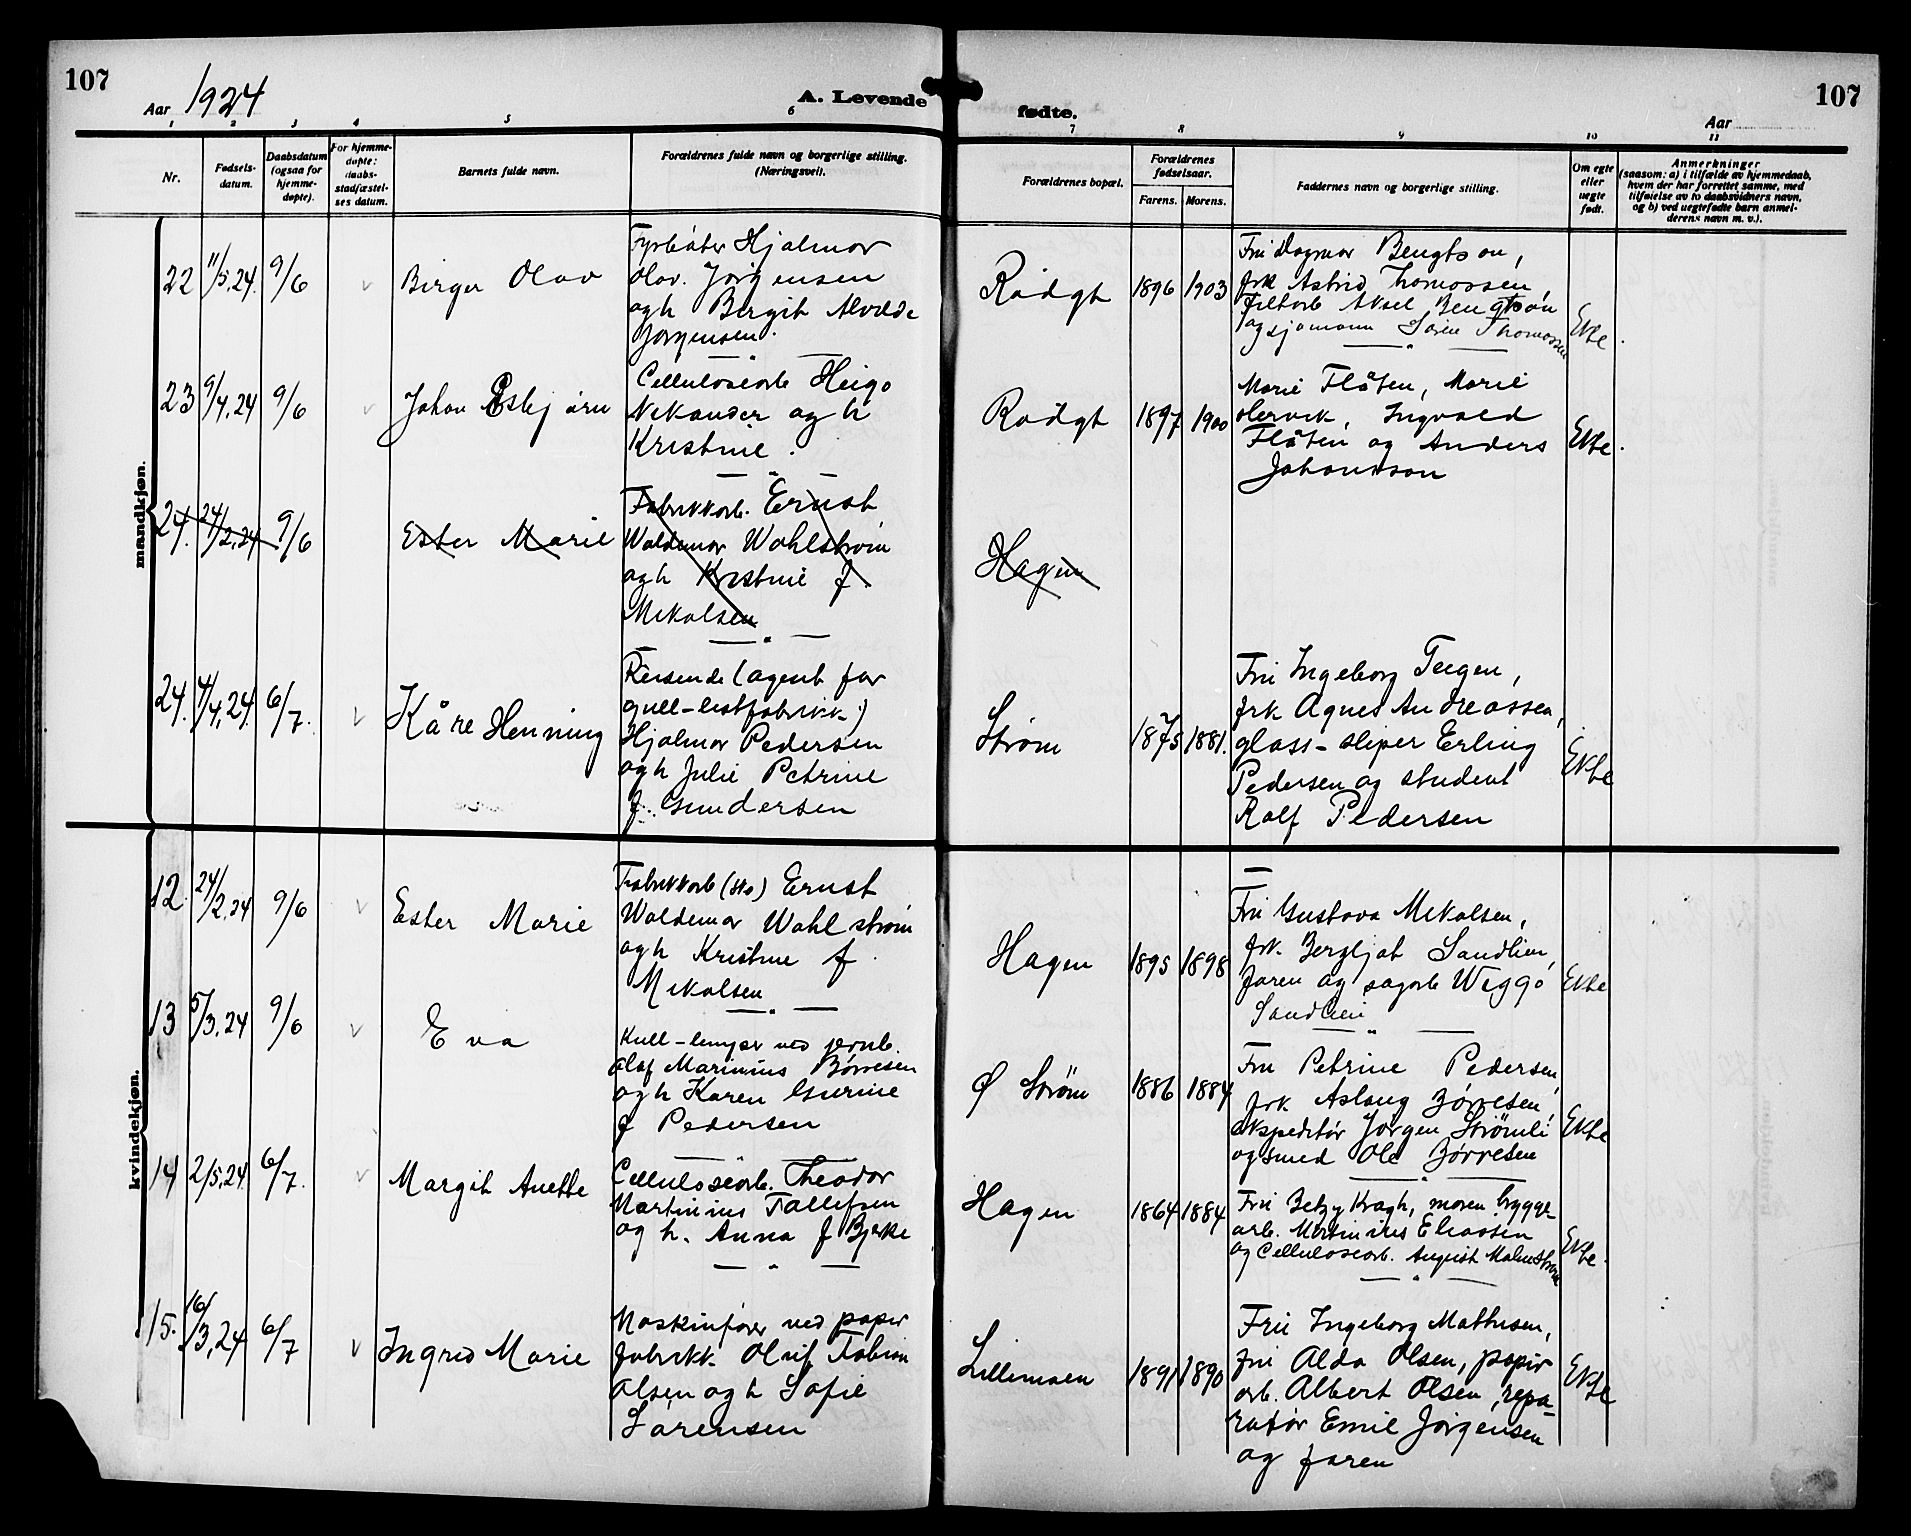 107
Aar 1924
A. Levende
fødte.
Aar
107
1 2 3 4 5 6 7 8 9 10 11
Nr.
Fødsels-
datum.
Daabsdatum
(ogsaa for
hjemme-
døpte).
For hjemme-
døpte:
daabs-
stadfæstel-
ses datum.
Barnets fulde navn.
Forældrenes fulde navn og borgerlige stilling.
(Næringsvei).
Forældrenes bopæl.
Forældrenes
fødselsaar.
Farens. Morens.
Faddernes navn og borgerlige stilling.
Om egte
eller
uegte
født.
Anmerkninger
(saasom: a) i tilfælde av hjemmedaab,
hvem der har forrettet samme, med
tilføielse av to daabsvidners navn,
og b) ved uegtefødte barn anmel-
derens navn m. v.).
mandkjøn.
22 11/5.24. 9/6 v Birger Olav
Fyrbøter Hjalmar
Olav. Jørgensen
og h Birgit Alvilde
Jørgensen.
Rødgt 1896 1903
Fru Dagmar Bengtson,
frk Astrid Thomassen,
Filtarb Aksel Bengtson
og sjømann Søren Thomassen
Ekte.
23 9/4.24 9/6 v Johan Esbjørn
Celluloseorb Heigo
Nekander og h
Kristine.
Rødgt 1897 1900
Marie Flåten, Marie
Ingvald
Flåten og Anders
Johansson
Ekte.
24. 24/2.24 9/6 Ester Marie
Fabrikkorb. Ernst
Waldemar Wahlstrøm
og h Kristine f.
Mikalsen
Hagen
24. 4/4.24. 6/7. v Kåre Henning
Reisende (agent for
gull-listfabrikk.)
Hjalmar Pedersen
og h Julie Petrine
f. Gundersen
Strøm 1875 1881.
Fru Ingeborg Teigen,
frk Agnes Andreassen,
glass-sliper Erling
Pedersen og student
Rolf Pedersen
Ekte
kvindekjøn.
12 24/2.24 9/6 v Ester Marie
Fabrikkorb Ernst
Waldemar Wahlstrøm
og h Kristine f.
Mikalsen
Hagen 1895 1898
Fru Gustava Mikalsen,
frk. Bergljot Sandlien,
faren og sagarb Wiggo
Sandlien
Ekte
13 5/3.24 9/6 v Eva
Kull-lemper ved jernb.
Olaf Marinius Børresen
og h Karen Gurine
f Pedersen
Ø Strøm 1886 1884
Fru Petrine Pedersen,
frk Aslaug Børresen,
ekspeditør Jørgen Strømli
og smed Ole Børresen
Ekte
14 2/5.24. 6/7. v Margit Anette
Celluloseorb. Theodor
Martinius Tallefsen
og h. Anna f Bjerke
Hagen 1864 1884
Fru Betzy Kragh, moren brygge-
arb. Martinius Eliassen
og Celluloseorb. August Malmstrøm
Ekte.
15. 16/3.24 6/7 v Ingrid Marie
Maskinfører ved papir
fabrikk Oluf Fabian
Olsen og h Sofie
Sørensen
Lillemoen 1891 1890
Fru Ingeborg Mathisen,
fru Alda Olsen, papir
orb. Albert Olsen, repa-
ratør Emil Jørgensen
og faren
Ekte